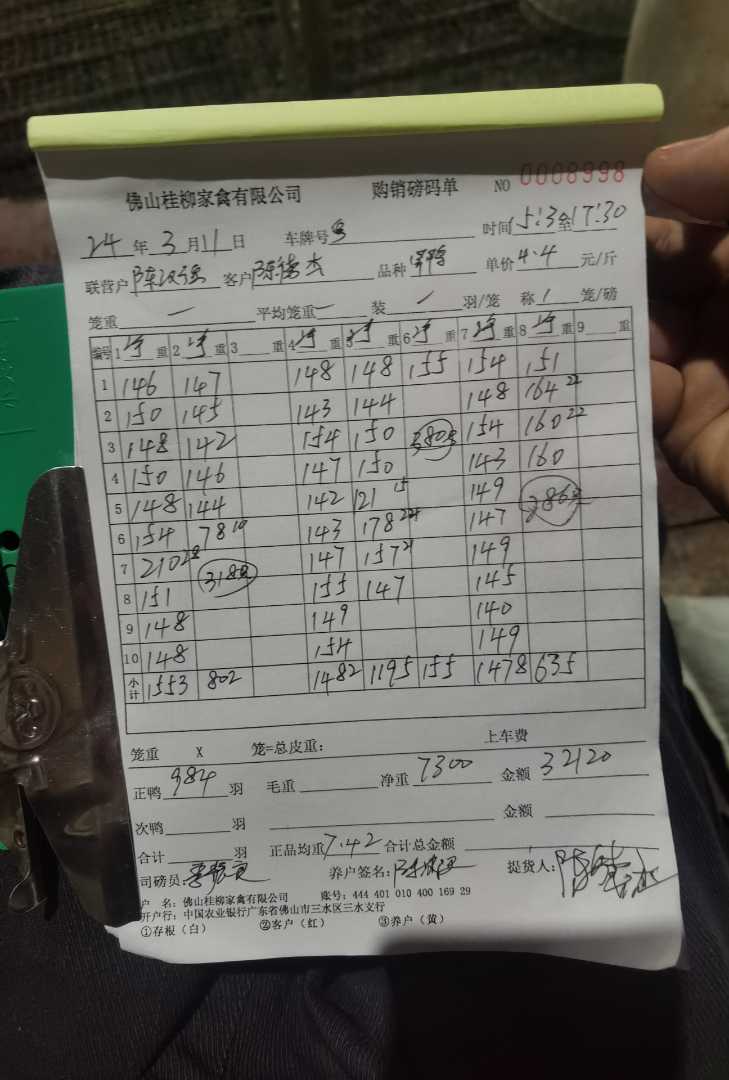 佛山桂柳家禽有限公司 购销磅码单 NO 0008998
24年3月11日 车牌号 时间15:3至17:30
联营户 客户陈 杰 品种 单价4.4元/斤
笼重一 平均笼重一 装/羽/笼 称/笼/磅
编号 1 重 2 重 3 重 4 重 5 重 6 重 7 重 8 重 9 重
1 146 147 148 148 155 154 151
2 150 145 143 144 148 164 22
3 148 142 154 150 380只 154 160 22
4 150 146 147 150 143 160
5 148 144 142 121 15 149 286只
6 154 78 10 143 178 24 147
7 210 28 318只 147 157 21 149
8 151 155 147 145
9 148 149 140
10 148 154 149
小计 1553 802 1482 1195 155 1478 635
笼重 X 笼=总皮重: 上车费
正鸭984羽 毛重 净重7300 金额32120
次鸭 羽 金额
合计 羽 正品均重7.42 合计总金额
司磅员: 养户签名: 提货人:
户 名: 佛山桂柳家禽有限公司 账号: 444 401 010 400 169 29
开户行: 中国农业银行广东省佛山市三水区三水支行
①存根(白) ②客户(红) ③养户(黄)